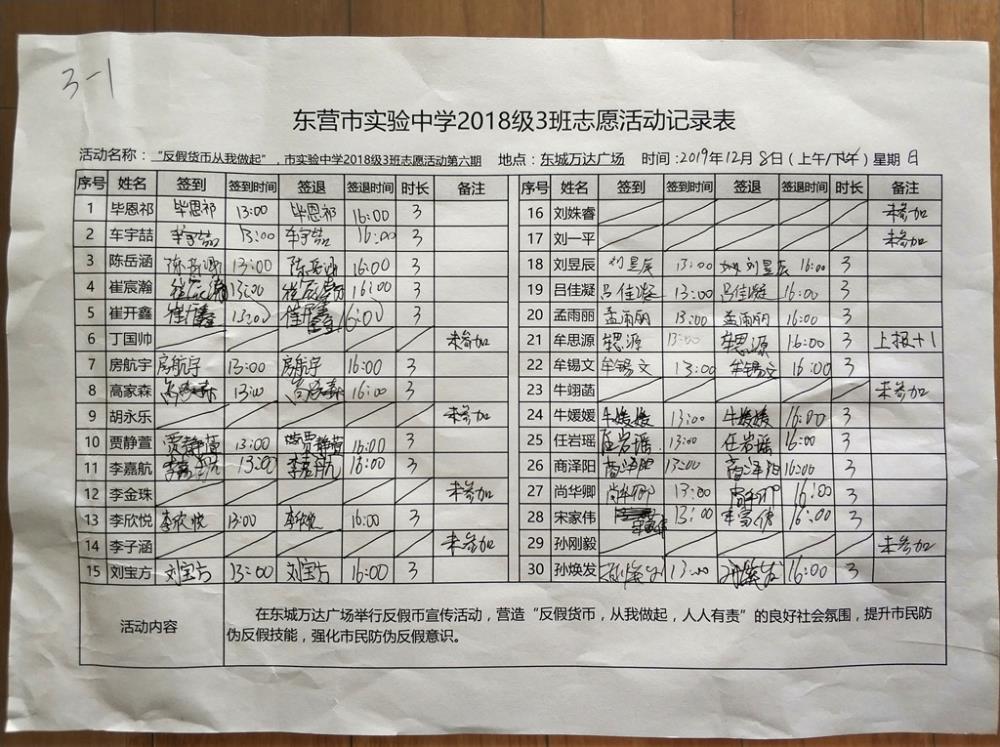 3-1
东营市实验中学2018级3班志愿活动记录表
活动名称：“反假货币从我做起”，市实验中学2018级3班志愿活动第六期 地点：东城万达广场 时间：2019年12月8日（上午/下午）星期日
序号 姓名 签到 签到时间 签退 签退时间 时长 备注
1 毕恩祁 毕恩祁 13:00 毕恩祁 16:00 3
2 车宇喆 车宇喆 13:00 车宇喆 16:00 3
3 陈岳涵 陈岳涵 13:00 陈岳涵 16:00 3
4 崔宸瀚 崔宸瀚 13:00 崔宸瀚 16:00 3
5 崔开鑫 崔开鑫 13:00 崔开鑫 16:00 3
6 丁国帅 未参加
7 房航宇 房航宇 13:00 房航宇 16:00 3
8 高家森 高家森 13:00 高家森 16:00 3
9 胡永乐 未参加
10 贾静萱 贾静萱 13:00 贾静萱 16:00 3
11 李嘉航 李嘉航 13:00 李嘉航 16:00 3
12 李金珠 未参加
13 李欣悦 李欣悦 13:00 李欣悦 16:00 3
14 李子涵 未参加
15 刘宝方 刘宝方 13:00 刘宝方 16:00 3
序号 姓名 签到 签到时间 签退 签退时间 时长 备注
16 刘姝睿 未参加
17 刘一平 未参加
18 刘昱辰 刘昱辰 13:00 刘昱辰 16:00 3
19 吕佳凝 吕佳凝 13:00 吕佳凝 16:00 3
20 孟雨丽 孟雨丽 13:00 孟雨丽 16:00 3
21 牟思源 牟思源 13:00 牟思源 16:00 3 上报+1
22 牟锡文 牟锡文 13:00 牟锡文 16:00 3
23 牛翊菡 未参加
24 牛媛媛 牛媛媛 13:00 牛媛媛 16:00 3
25 任岩瑶 任岩瑶 13:00 任岩瑶 16:00 3
26 商泽阳 商泽阳 13:00 商泽阳 16:00 3
27 尚华卿 尚华卿 13:00 尚华卿 16:00 3
28 宋家伟 宋家伟 13:00 宋家伟 16:00 3
29 孙刚毅 未参加
30 孙焕发 孙焕发 13:00 孙焕发 16:00 3
活动内容
在东城万达广场举行反假币宣传活动，营造“反假货币，从我做起，人人有责”的良好社会氛围，提升市民防
伪反假技能，强化市民防伪反假意识。